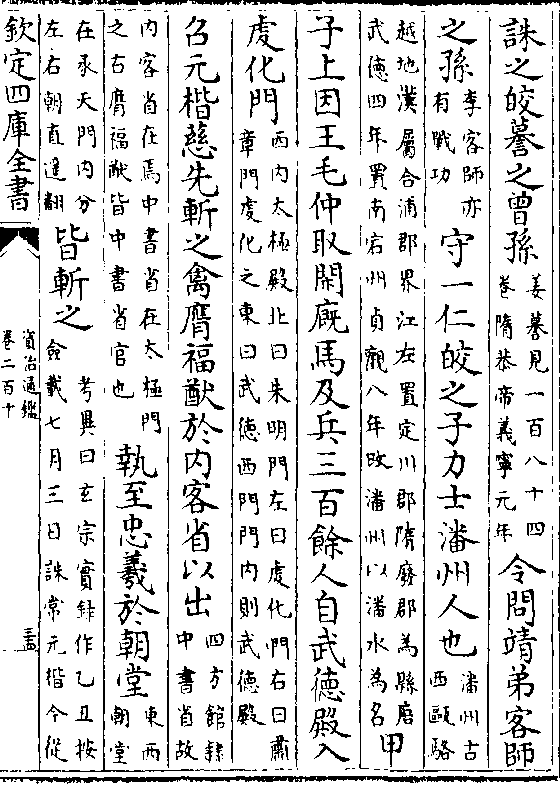 誅之皎謩之曾孫姜謩見一百八十四卷隋恭帝義寧元年令問靖弟客師
之孫李客師亦有戰功守一仁皎之子力士潘州人也潘州古西甌駱
越地漢屬合浦郡界江左置定川郡隋廢郡為縣唐武德四年置南宕州貞觀八年改潘州以潘水為名甲
子上因王毛仲取閑廐馬及兵三百餘人自武德殿入
䖍化門西内太極殿北曰朱明門左曰䖍化門右曰肅章門䖍化之東曰武德西門門内則武德殿
召元楷慈先斬之禽膺福猷於内客省以出四方館隸中書省故
内客省在焉中書省在太極門之右膺福猷皆中書省官也執至忠羲於朝堂東西朝堂
在承天門内分左右朝直逹翩皆斬之考異曰玄宗實録作乙丑按僉載七月三日誅常元楷今從
欽定四庫全書
資治通鑑
卷二百十